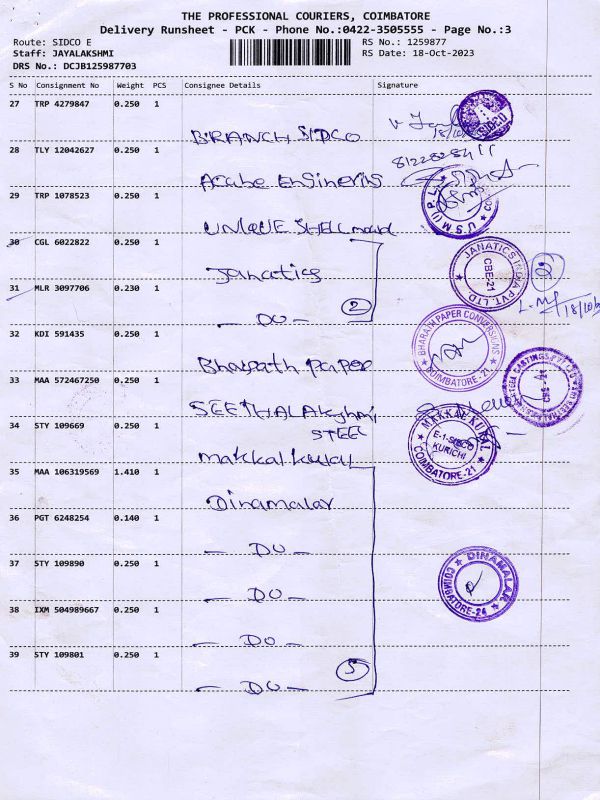 THE PROFESSIONAL COURIERS, COIMBATORE
Delivery Runsheet - PCK - Phone No.:0422-3505555 - Page No.:3
Route: SIDCO E RS No.: 1259877
Staff: JAYALAKSHMI RS Date: 18-Oct-2023
DRS No.: DCJB125987703
S No Consignment No Weight PCS Consignee Details Signature
27 TRP 4279847 0.250 1
BRANCH SIDCO
18/10
28 TLY 12042627 0.250 1
29 TRP 1078523 0.250 1
UNIQUE SHELL mould
U S M (I P L
30 CGL 6022822 0.250 1
Janatics
JANATICS INDIA PVT. LTD.
CBE-21
31 MLR 3097706 0.230 1
— DO — 2
18/10
32 KDI 591435 0.250 1
Bharath paper
BHARATH PAPER CONVERSIONS
COIMBATORE-21
33 MAA 572467250 0.250 1
SEETHALAkshmi
STEEL
34 STY 109669 0.250 1
makkal kural
MAKKAL KURAL
E-1-SIDCO
KURICHI
COIMBATORE-21
35 MAA 106319569 1.410 1
Dinamalar
36 PGT 6248254 0.140 1
— DO —
37 STY 109890 0.250 1
— DO —
DINAMALAR
COIMBATORE-24
38 IXM 504989667 0.250 1
— DO —
39 STY 109801 0.250 1
— DO — 5